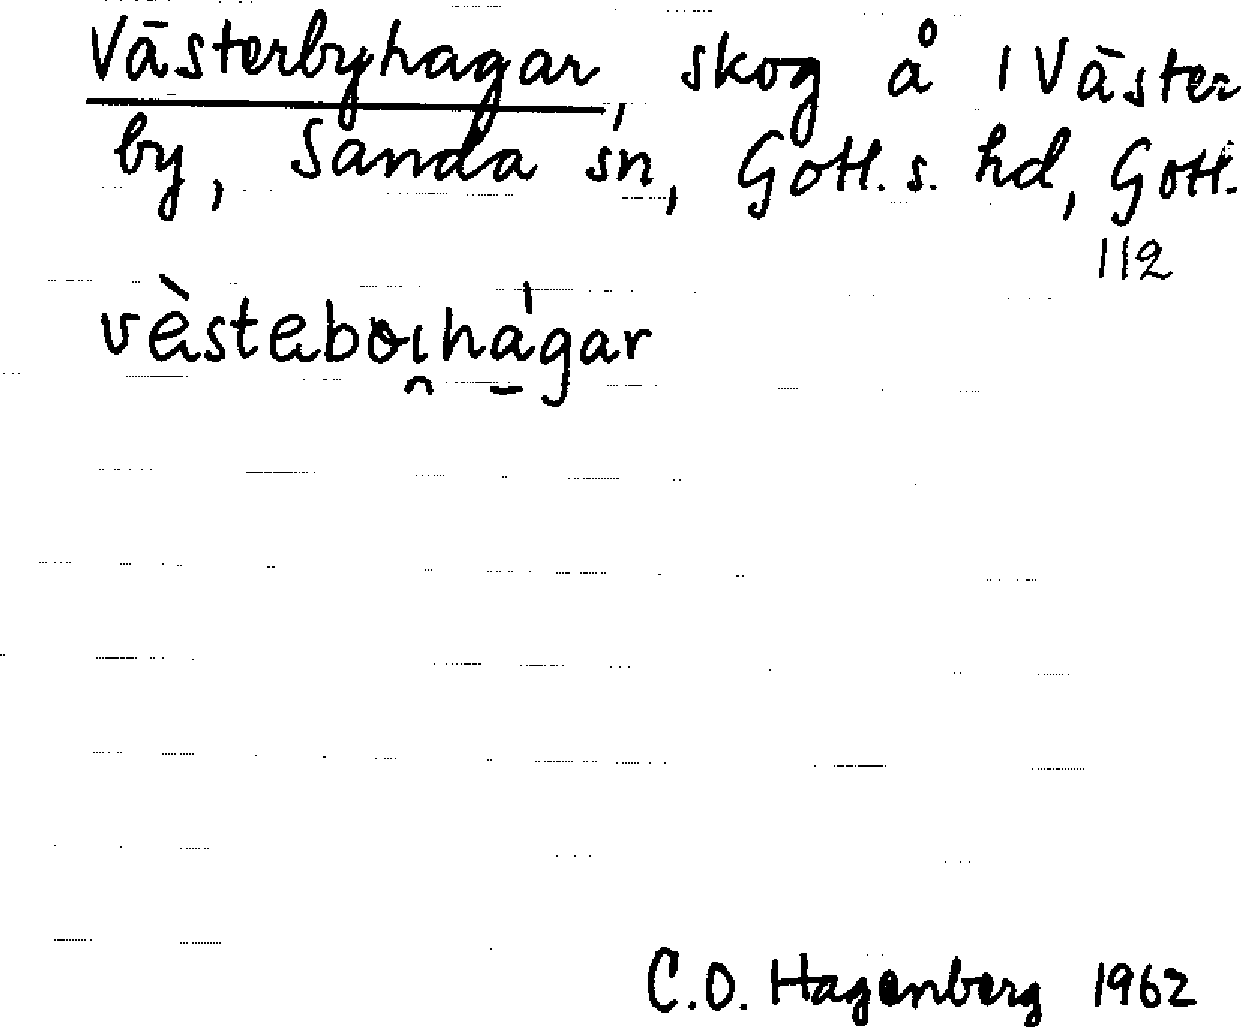 Västerbyhagar, skog å 1 Väster
by, Sanda sn, Gotl. s. hd, Gotl.
112
vèstebơi̯há̱gar
C.O. Hagenberg 1962